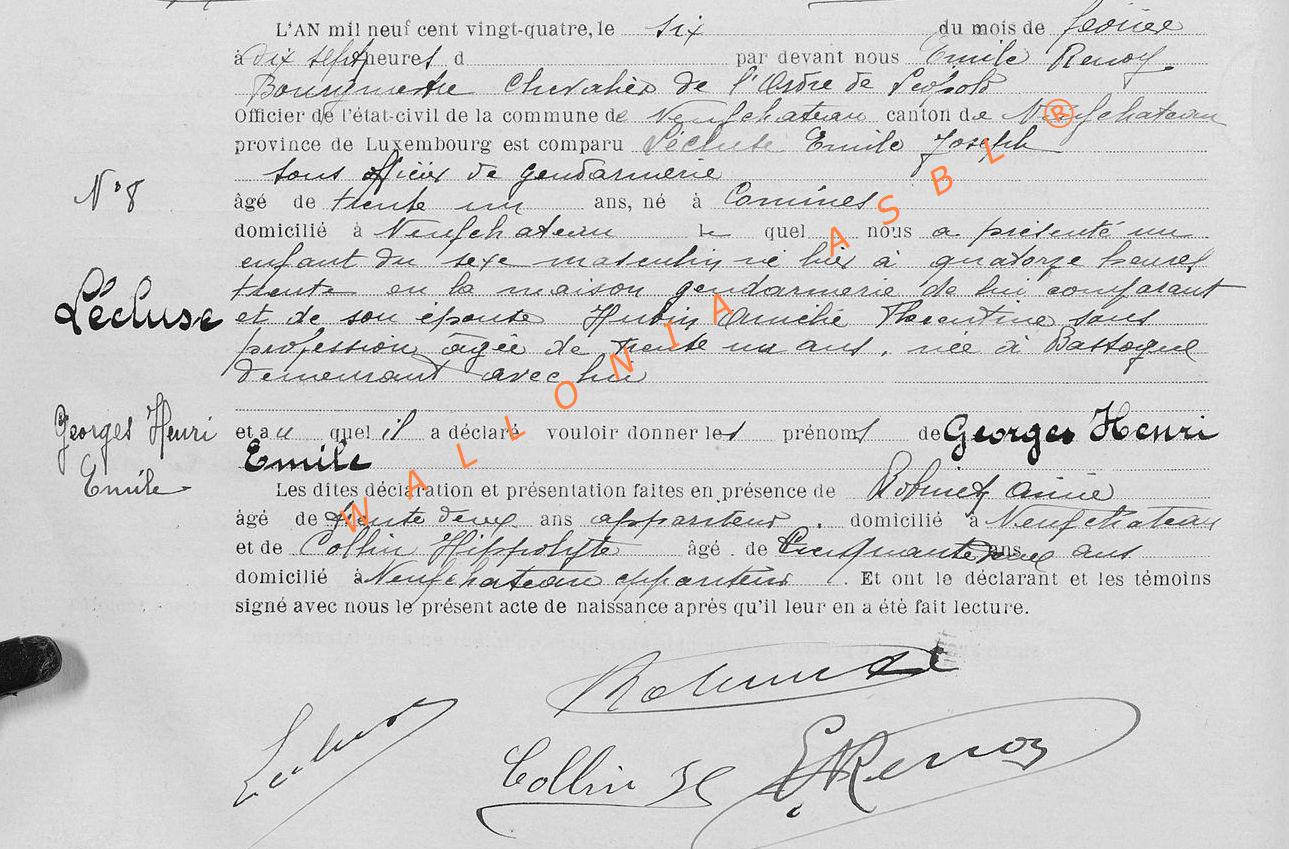 L'AN mil neuf cent vingt-quatre, le six du mois de février
à dix sept heures d par devant nous Emile Renoy
Bourgmestre Chevalier de l'Ordre de Léopold
Officier de l'état-civil de la commune de Neufchateau canton de Neufchateau
province de Luxembourg est comparu Lécluse Emile Joseph
sous officier de gendarmerie
N° 8
âgé de trente un ans, né à Comines
domicilié à Neufchateau le quel nous a présenté un
enfant du sexe masculin né hier à quatorze heures
trente en la maison gendarmerie de lui comparant
Lécluse
et de son épouse Hubin sans
profession agée de trente un ans, née à Bastogne
demeurant avec lui
Georges Henri
Emile
et au quel il a déclaré vouloir donner les prénoms de Georges Henri
Emile
Les dites déclaration et présentation faites en présence de Robinet Aimé
âgé de trente deux ans appariteur, domicilié à Neufchateau
et de Collin Hippolyte âgé de Cinquante ans ans
domicilié à Neufchateau appariteur. Et ont le déclarant et les témoins
signé avec nous le présent acte de naissance après qu'il leur en a été fait lecture.
Robinet
Lécluse
Collin H
E Renoy
WALLONIA ASBL ®